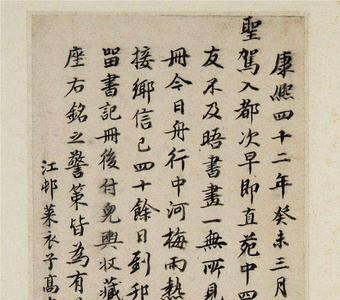 康熙四十二年癸未三月
聖駕入都次早即直苑中四
友不及晤書畫一無所見
冊今日舟行中河梅雨熱
接鄉信已四十餘日到
留書記冊後付兒輿收藏
座右銘之警策皆為有
江邨萊衣子高